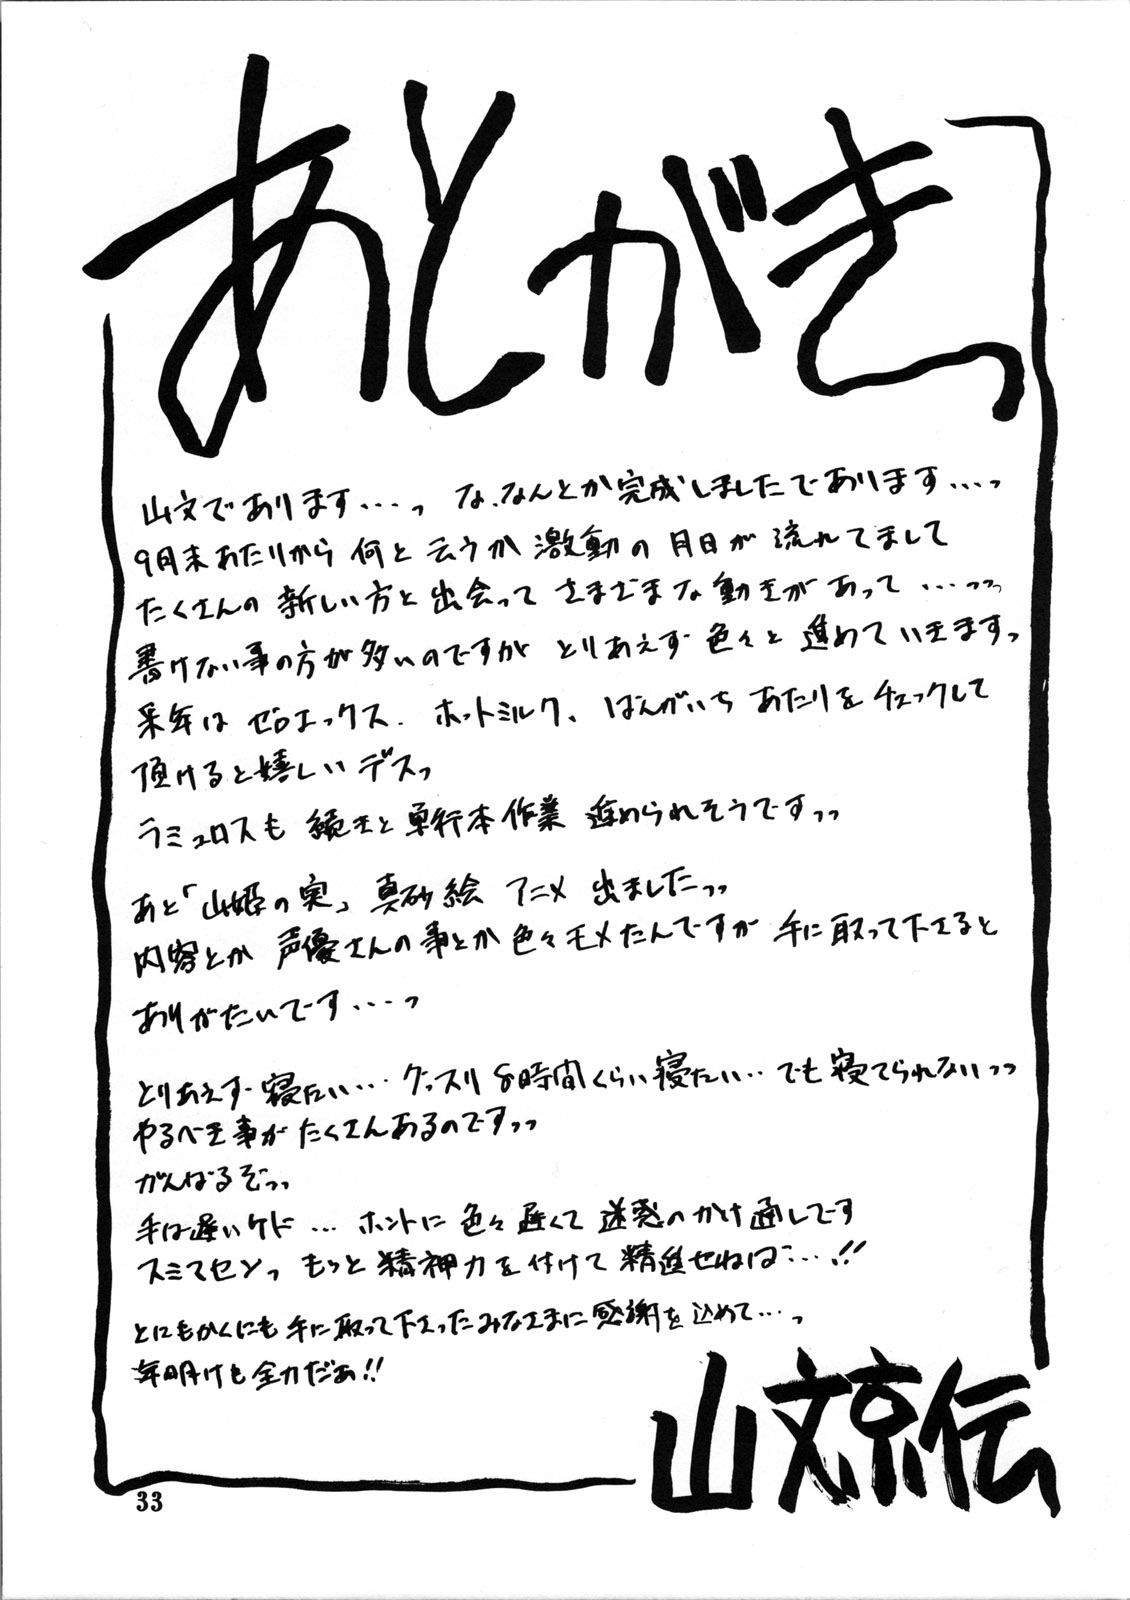 あとがきっ
山文であります・・・・っ な、なんとか完成しましたであります・・・・っ
9月末あたりから 何と云うか 激動の 月日が 流れてまして
たくさんの 新しい方と 出会って さまざまな動きがあって ・・・・っっっ
書けない事の方が多いのですが とりあえず 色々と 進めていきますっ
来年は ゼロエックス、ホットミルク、ばんがいち あたりを チェックして
頂けると嬉しい デスっ
ラミュロスも 続きと 単行本作業 進められそうですっっ
あと「山姫の実」真砂絵 アニメ 出ましたっっ
内容とか 声優さんの事とか 色々モメたんですが 手に取って下さると
ありがたいです・・・・っ
とりあえず 寝たい・・・ グッスリ 8時間くらい 寝たい・・ でも 寝てられないっっ
やるべき事が たくさんあるのですっっ
がんばるぞっっ
手は遅いケド ・・・ ホントに 色々 遅くて 迷惑のかけ通しです
スミマセンっ もっと 精神力を付けて 精進せねば・・・・!!
とにもかくにも 手に取って下さったみなさまに感謝を込めて・・・っ
年明けも 全力だぁ!!
山文京伝
33